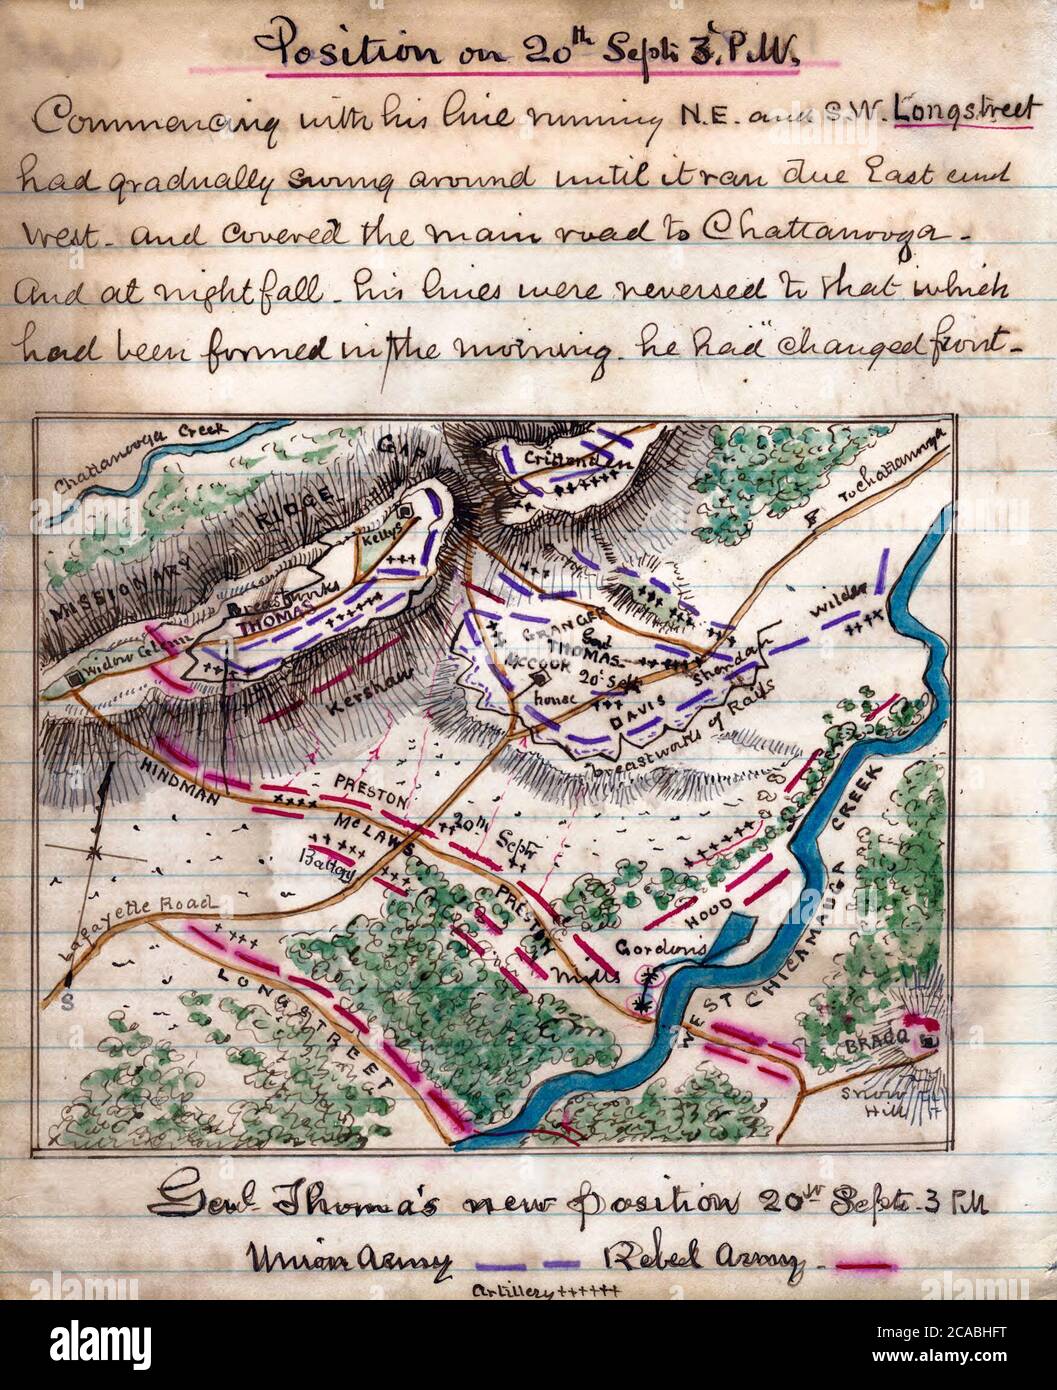 Position on 20th Sept: 3. P.M.
Commencing with his line running N.E. and S.W. Longstreet
had gradually swung around until it ran due East and
West - and covered the main road to Chattanooga -
And at nightfall - his lines were reversed to that which
had been formed in the morning. he had "changed front -
Chattanooga Creek
GAP
Crittenden
To Chattanooga
MISSIONARY RIDGE
Kellys
Breastworks
THOMAS
Wilder
GRANGER
Genl THOMAS
McCOOK 20th Sept
house
Sheridan
DAVIS
breastworks of Rails
Widow Glenn
Kershaw
HINDMAN
PRESTON
Mc LAWS
20th Sept
Battery
PRESTON
HOOD
WEST CHICAMAUGA CREEK
Gordon's
Mills
Lafayette Road
S
LONGSTREET
BRAGG
Snow
Hill
Genl Thomas's new position 20th Sept - 3 PM
Union Army Rebel Army -
Artillery ++++++
alamy
Image ID: 2CABHFT
www.alamy.com